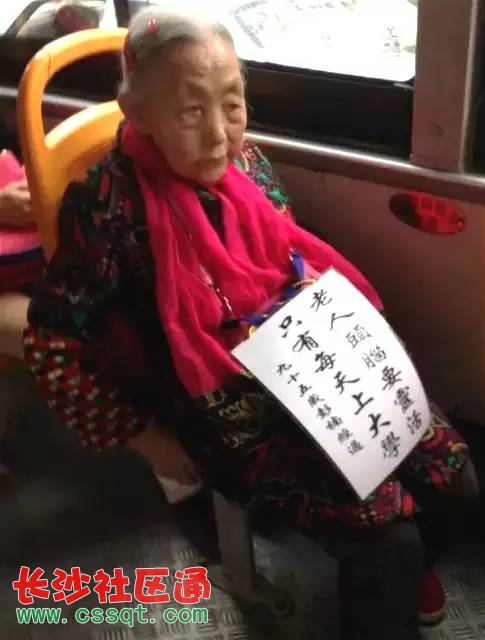 老人頭腦要靈活
只有每天上大學
九十五歲
长沙社区通
www.cssqt.com